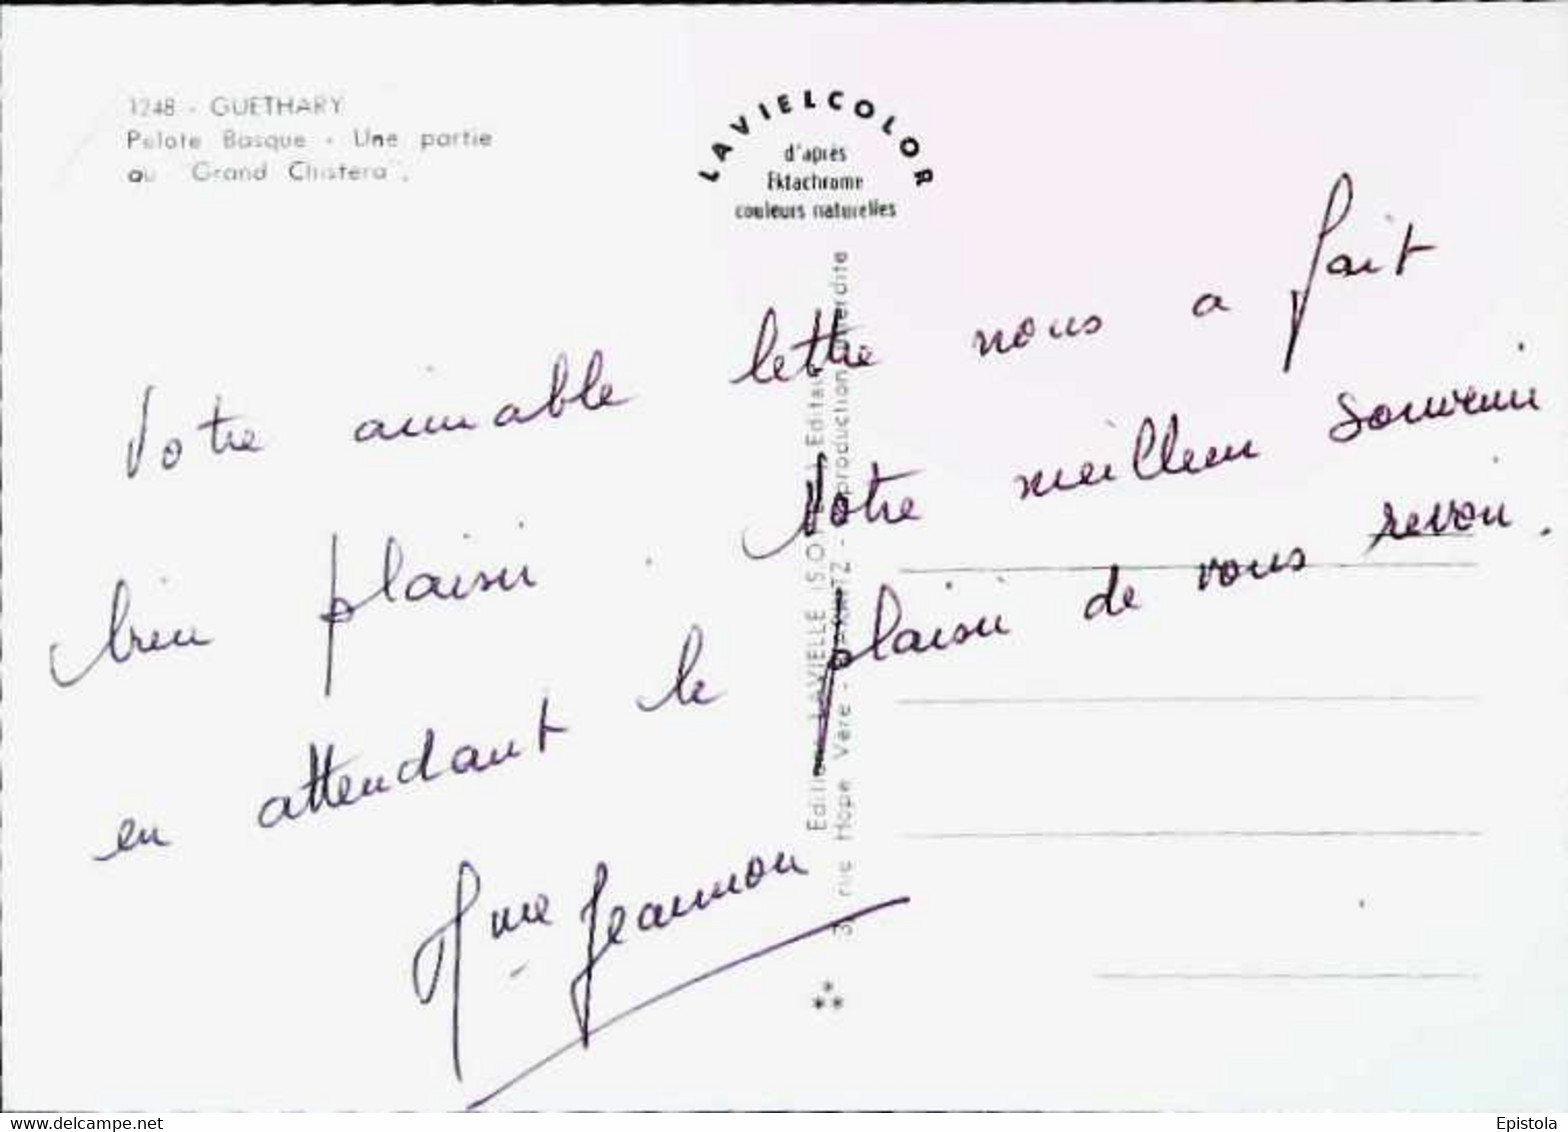 1248 - GUETHARY
Pelote Basque - Une partie
au "Grand Chistera".
LAVIELCOLOR
d'après
Ektachrome
couleurs naturelles
Votre aimable lettre nous a fait
bien plaisir. Votre meilleur souvenir
en attendant le plaisir de vous revoir.
Mme Jeannon
Editions LAVIELLE (S.O.) Editeur
rue Hope Vere - BIARRITZ - Reproduction interdite
delcampe.net
Epistola